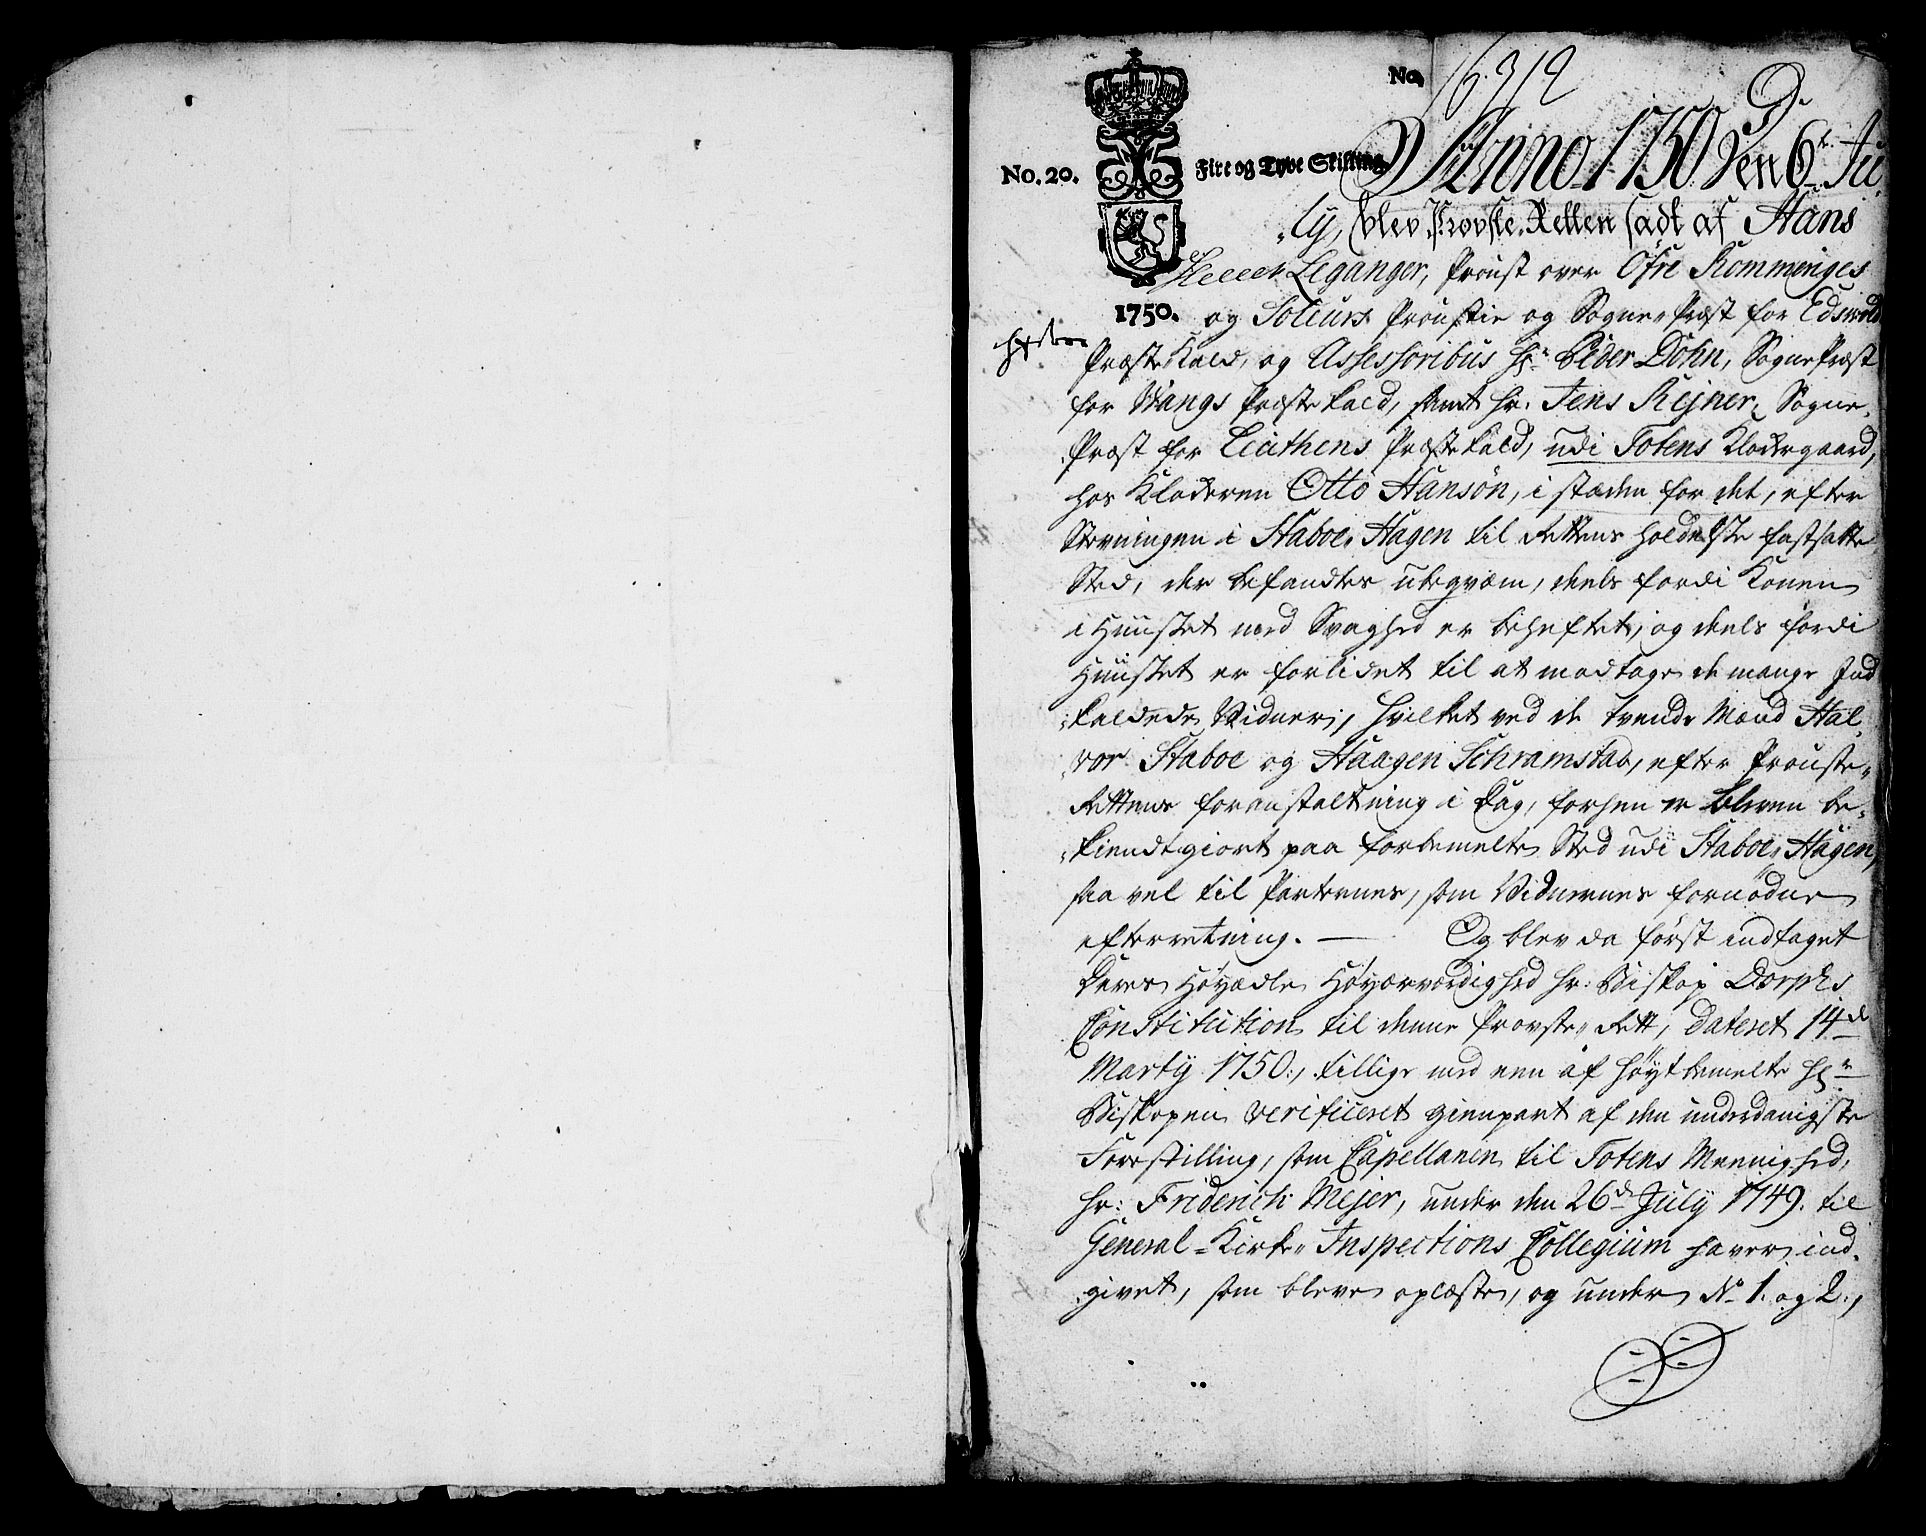 No. 16312
No. 20. Fire og Tyve Skilling
Anno 1750 Den 6te Ju,
,ly, blev Provste-Retten sadt af Hans
Leganger, Proust over Ofre Rommeriges
1750. og Soleurs Proustie og Sogne-Præst for Edsvold
Præste Kald, og Assessoribus Hr. Peder Dohn, Sogne Præst
for Wangs Præste Kald, samt Hr. Jens Rejner, Sogne,
,Præst for Leuthens Præste Kald, udi Totens Klokergaard,
hos Klokeren Otto Hansøn, i stæden for det, efter
Stevningen i Staboe-Hagen til Rettens holdelste fastsatte
Sted, der befandtes ubeqvæm, deels fordi Konen
i Huuset med Svaghed er beheftet, og deels fordi
Huuset er forlidet til at modtage de mange Ind
,kaldede Vidner, hvilket ved de tvende Mænd Hal,
,vor Staboe og Haagen Schramstad, efter Prouste-
Rettens foranstaltning i Dag, forhen er bleven be,
,kiendtgiort paa forbemelte Sted udi Staboe-Hagen,
saa vel til Parternes, som Vidnernes fornødne
efterretning. — Og blev da først indtaget
Deres Høyædle Høyærværdighed Hr: Biskop Dorphs
Constitution til denne Provste-Rett, dateret 14de
Martij 1750:, tillige med een af høystbemelte Hr.
Biskopen verificeret gienpart af den underdanigste
Forestilling, som Capellanen til Totens Meenighed,
Hr: Friderich Mejer, under den 26de July 1749. til
General-Kirke-Inspections Collegium haver ind,
,givet, som bleve oplæste, og under No 1. og 2:,